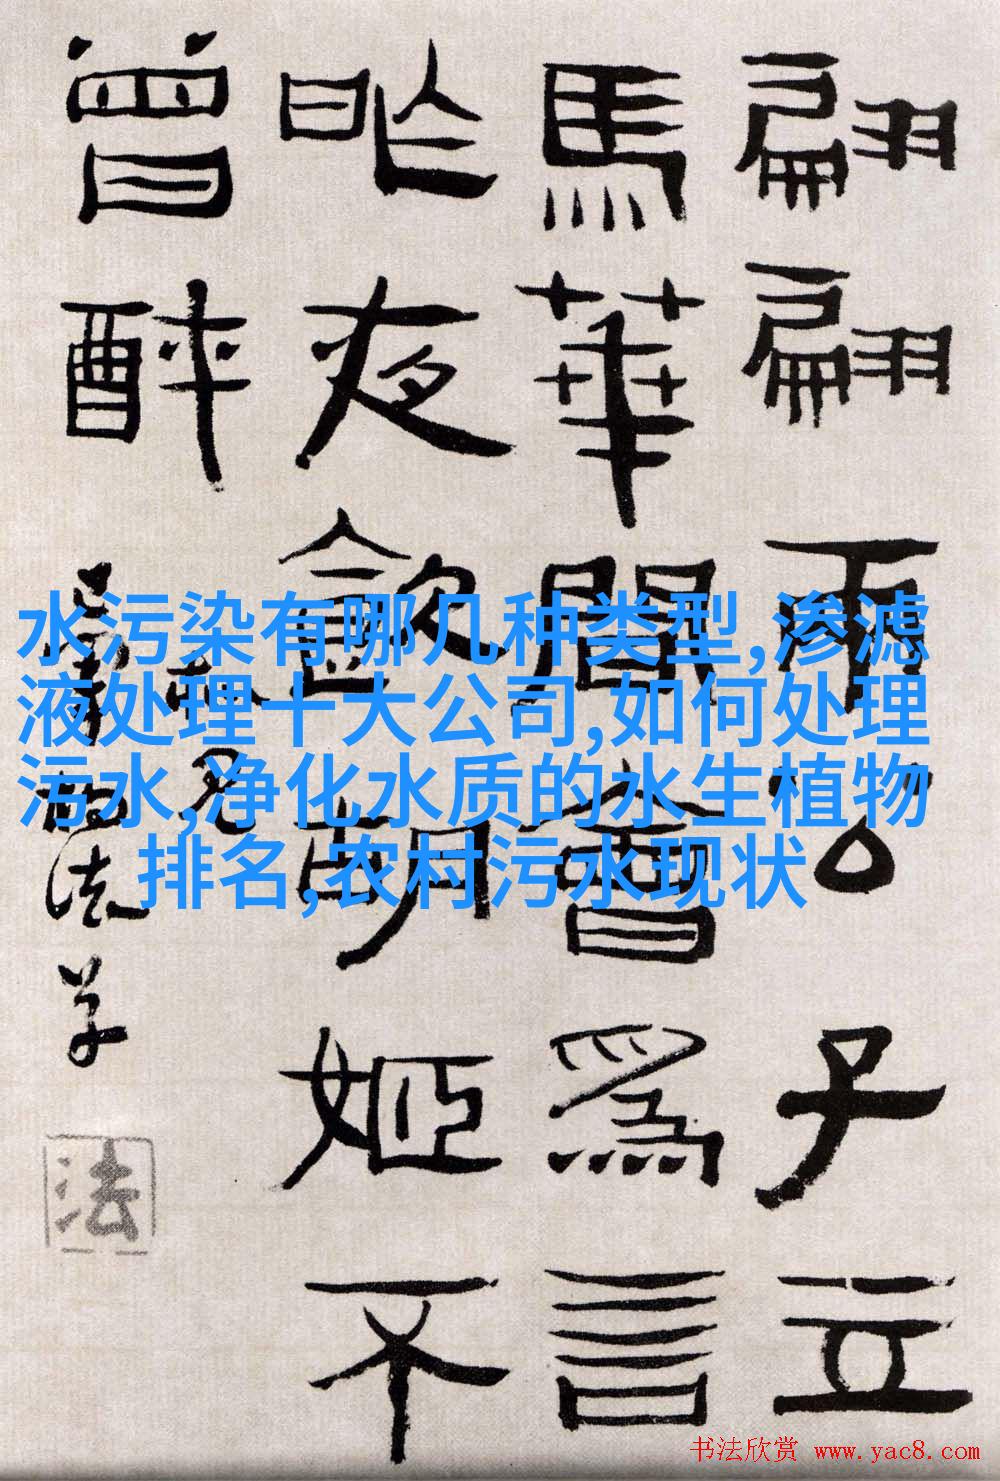 翩翩兩公子立
馬華間會爲言
昨夜飲胡姬不
曾醉
法
水污染有哪几种类型,渗滤
液处理十大公司,如何处理
污水,净化水质的水生植物
排名,农村污水现状
书法欣赏 www.yac8.com